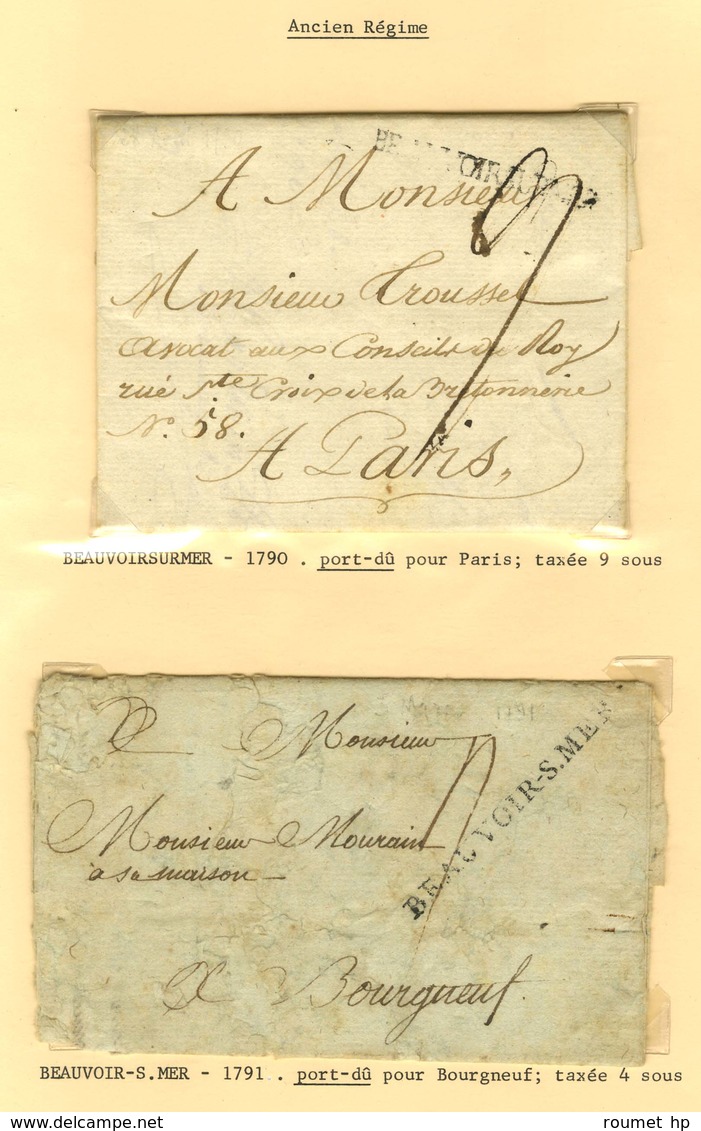 Ancien Régime
BEAUVOIRSURMER
A Monsieur
Monsieur Trousset
Avocat aux Conseils du Roy
rüe Ste Croix de la Bretonnerie
N.° 58.
A Paris,
BEAUVOIRSURMER - 1790 . port-dû pour Paris; taxée 9 sous
1791
A Monsieur
BEAUVOIR-S.MER
Monsieur Mourain
à sa maison
A Bourgneuf.
BEAUVOIR-S.MER - 1791 . port-dû pour Bourgneuf; taxée 4 sous
roumet hp